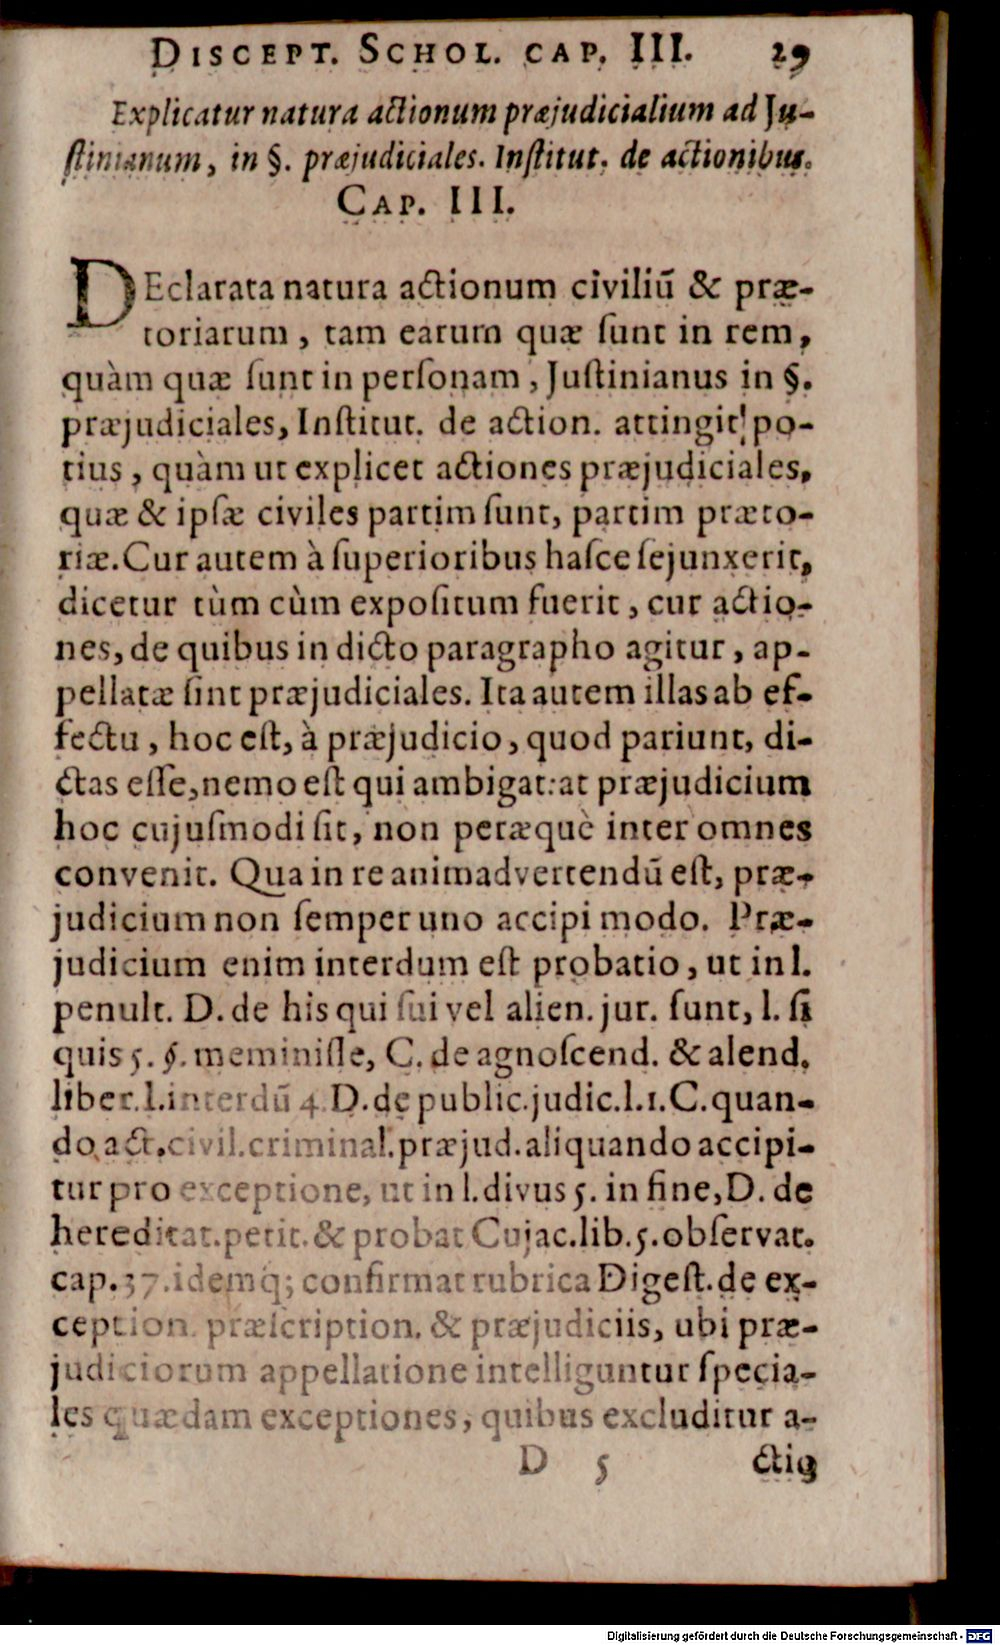 DISCEPT. SCHOL. CAP. III. 29
Explicatur natura actionum præjudicialium ad Ju-
ſtinianum, in §. præjudiciales. Inſtitut. de actionibus.
CAP. III.
DEclarata natura actionum civiliū & præ-
toriarum, tam earum quæ ſunt in rem,
quàm quæ ſunt in perſonam, Juſtinianus in §.
præjudiciales, Inſtitut. de action. attingit po-
tius, quàm ut explicet actiones præjudiciales,
quæ & ipſæ civiles partim ſunt, partim præto-
riæ. Cur autem à ſuperioribus haſce ſejunxerit,
dicetur tùm cùm expoſitum fuerit, cur actio-
nes, de quibus in dicto paragrapho agitur, ap-
pellatæ ſint præjudiciales. Ita autem illas ab ef-
fectu, hoc eſt, à præjudicio, quod pariunt, di-
ctas eſſe, nemo eſt qui ambigat: at præjudicium
hoc cujuſmodi ſit, non peræquè inter omnes
convenit. Qua in re animadvertendū eſt, præ-
judicium non ſemper uno accipi modo. Præ-
judicium enim interdum eſt probatio, ut in l.
penult. D. de his qui ſui vel alien. jur. ſunt, l. ſi
quis 5. §. meminiſſe, C. de agnoſcend. & alend.
liber. l. interdū 4. D. de public. judic. l. 1. C. quan-
do act. civil. criminal. præjud. aliquando accipi-
tur pro exceptione, ut in l. divus 5. in fine, D. de
hereditat. petit. & probat Cujac. lib. 5. obſervat.
cap. 37. idemq́; confirmat rubrica Digeſt. de ex-
ception. præſcription. & præjudiciis, ubi præ-
judiciorum appellatione intelliguntur ſpecia-
les quædam exceptiones, quibus excluditur a-
D 5 ctio
Digitalisierung gefördert durch die Deutsche Forschungsgemeinschaft - DFG